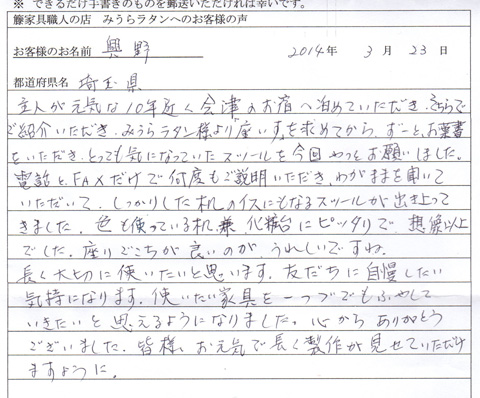 ※ できるだけ手書きのものを郵送いただければ幸いです。
籐家具職人の店 みうらラタンへのお客様の声
お客様のお名前 奥野 2014年 3月 23日
都道府県名 埼玉県
主人が元気な10年近く今津のお宿へ泊めていただき、そちらで
ご紹介いただき、みうらラタン様より座いすを求めてから、ずーと、お葉書
をいただき、とっても気になっていたスツールを今回やっとお願いしました。
電話とFAXだけで何度もご説明いただき、わがままを聞いて
いただいて、しっかりした机のイスにもなるスツールが出き上って
きました。色も使っている机兼化粧台にピッタリで、想像以上
でした。座りごこちが良いのがうれしいですね。
長く大切に使いたいと思います。友だちに自慢したい
気持になります。使いたい家具を一つづつでもふやして
いきたいと思えるようになりました。心からありがとう
ございました。皆様、お元気で長く製作が見せていただけ
ますように。